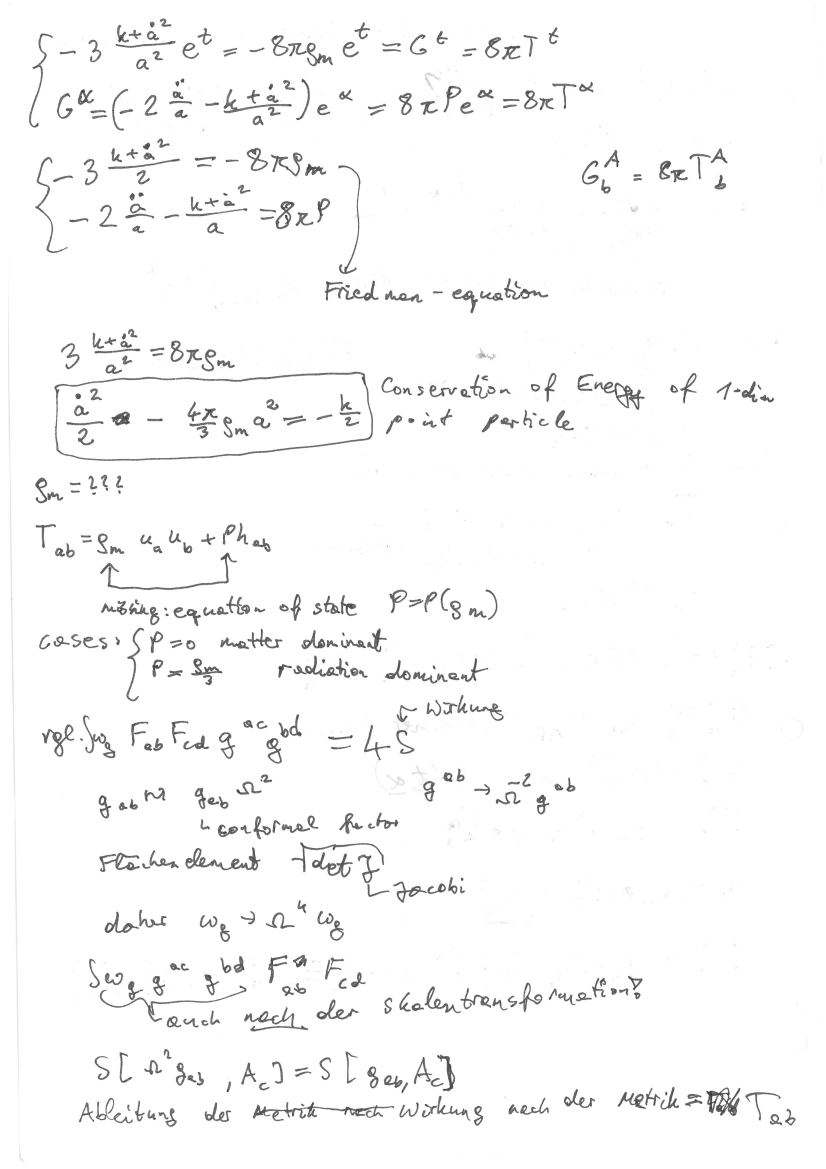 { - 3 (k+ȧ²)/a² e^t = - 8πρ_m e^t = G^t = 8πT^t
G^α = (- 2 ä/a - (k+ȧ²)/a²) e^α = 8πP e^α = 8πT^α
{ - 3 (k+ȧ²)/2 = - 8πρ_m
- 2 ä/a - (k+ȧ²)/a = 8πP
G^A_b = 8πT^A_b
Friedman - equation
3 (k+ȧ²)/a² = 8πρ_m
ȧ²/2 - 4π/3 ρ_m a² = - k/2
Conservation of Energy of 1-dim
point particle
ρ_m = ???
T_ab = ρ_m u_a u_b + P h_ab
missing: equation of state P=P(ρ_m)
cases: { P=0 matter dominant
P = ρ_m/3 radiation dominant
↙ Wirkung
vgl. ∫ω_g F_ab F_cd g^ac g^bd = 4S
g_ab ~> g_ab Ω² g^ab → Ω^-2 g^ab
↳ conformal factor
Flächenelement √det J
Jacobi
daher ω_g → Ω⁴ ω_g
∫ω_g g^ac g^bd F_ab F_cd
auch nach der skalentransformation!
S[Ω² g_ab, A_c] = S[g_ab, A_c]
Ableitung der Metrik nach Wirkung nach der Metrik = T_ab